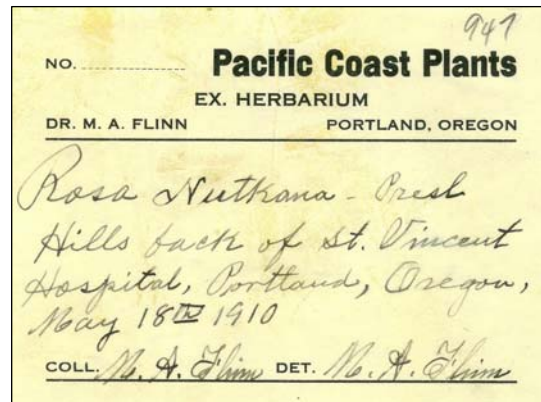 947
NO. Pacific Coast Plants
EX. HERBARIUM
DR. M. A. FLINN PORTLAND, OREGON
Rosa Nutkana - Presl
Hills back of St. Vincent
Hospital, Portland, Oregon,
May 18th 1910
COLL. M. A. Flinn DET. M. A. Flinn